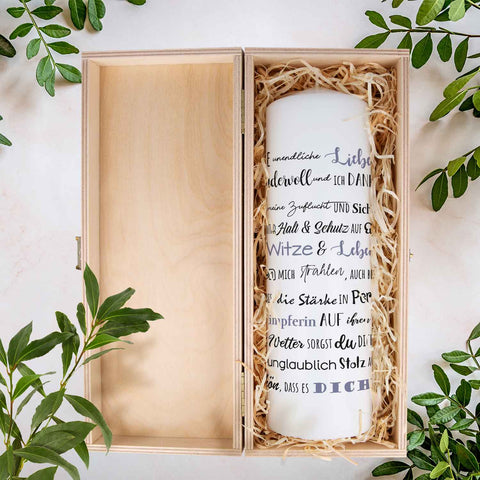 E unendliche Liebe
ndervoll und ICH DANK
meine Zuflucht UND Sich
Halt & Schutz AUF
Witze & Lebe
MICH strahlen, AUCH
die Stärke IN
mpferin AUF ihre
Wetter SORGST du DI
unglaublich Stolz
ön, DASS ES DICH